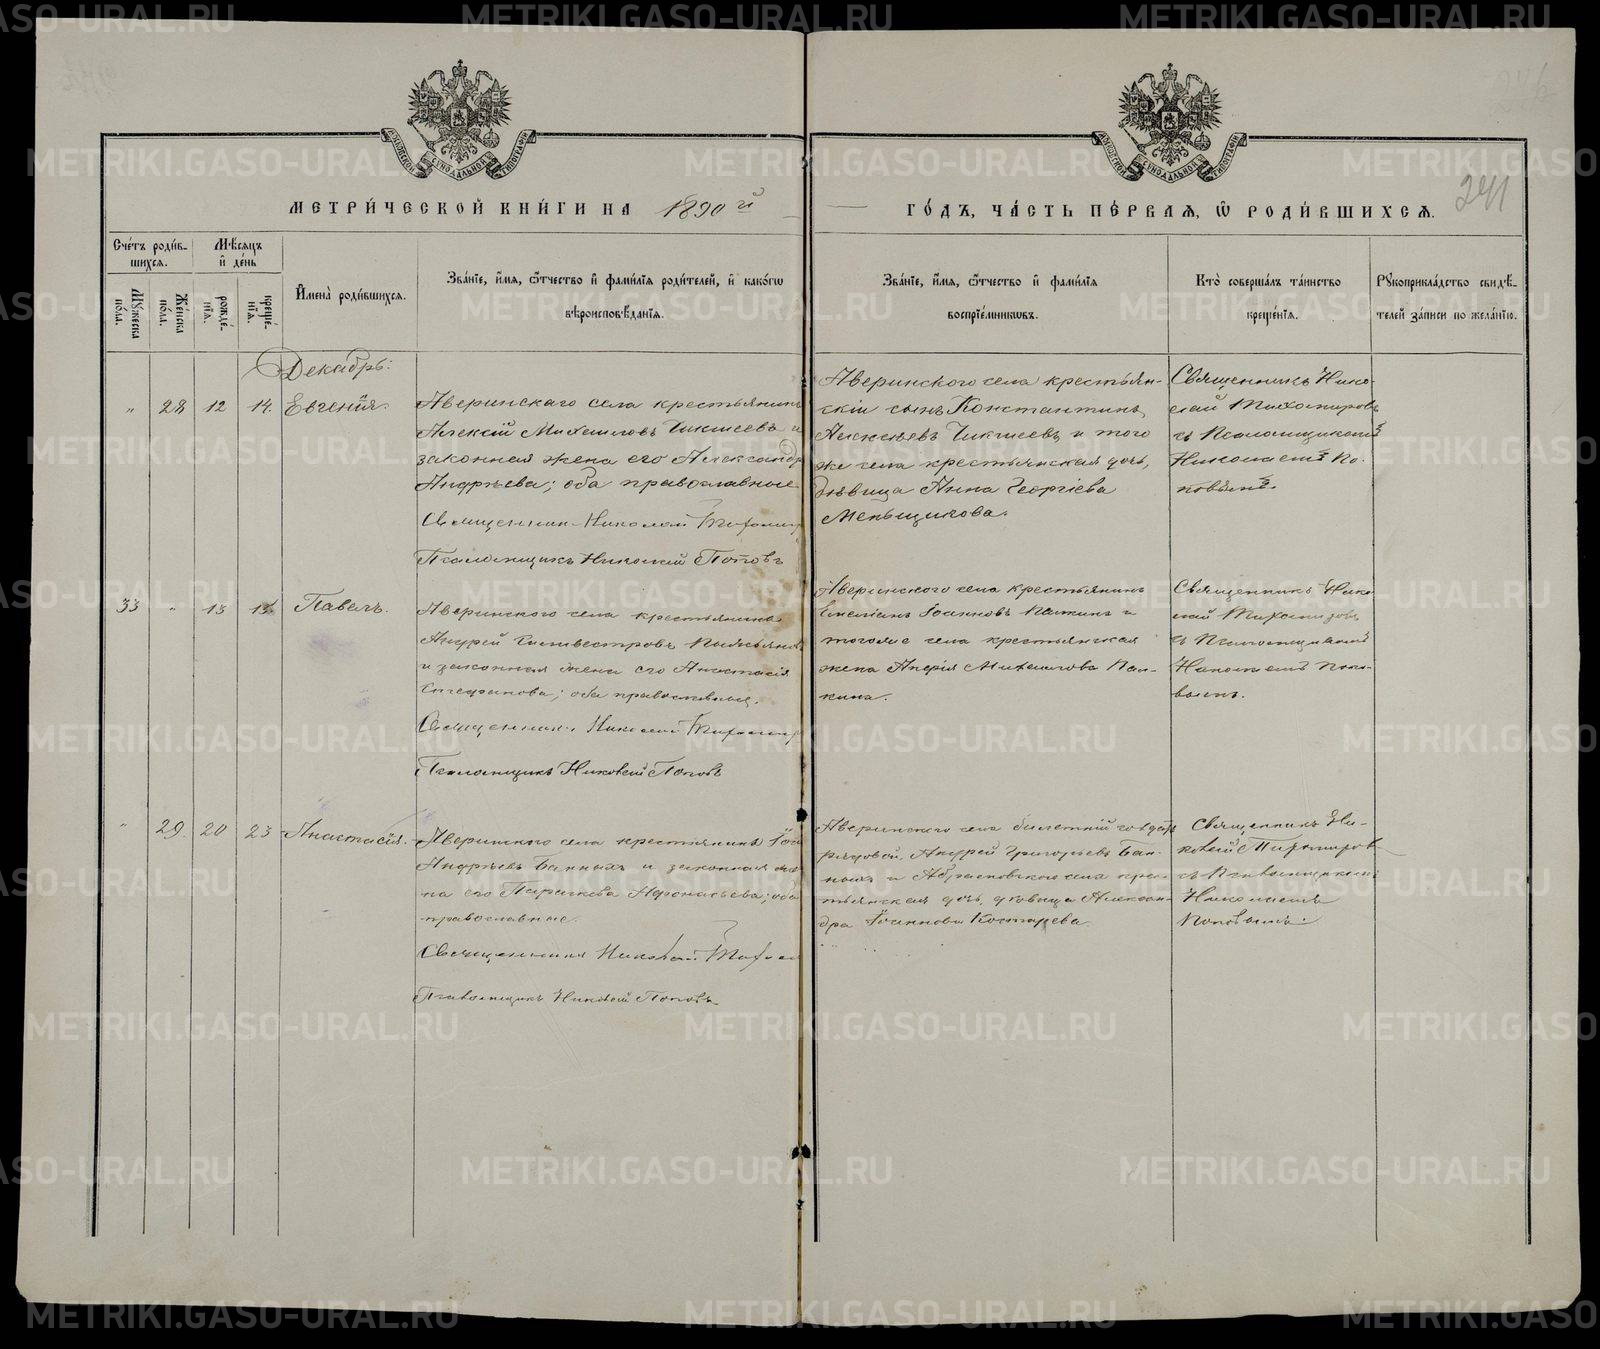 МЕТРИ́ЧЕСКОЙ КНИ́ГИ НА 1890й
ГО́ДЪ, ЧА́СТЬ ПЕ́РВАЯ, Ѡ РОДИ́ВШИХСЯ.
241
Сче́тъ роди́вшихся.
Му́жеска по́ла.
Же́нска по́ла.
Мѣ́сяцъ и҆ де́нь
рожде́нїя.
креще́нїя.
И҆мена̀ роди́вшихся.
Зва́нїе, и҆́мя, ѻ҆́тчество и҆ фами́лїя роди́телей, и҆ како́гѡ
вѣроисповѣ́данїя.
Зва́нїе, и҆́мя, ѻ҆́тчество и҆ фами́лїя
воспрїе́мникѡвъ.
Кто̀ соверша́лъ та́инство
креще́нїя.
Рꙋкоприкла́дство свидѣ́-
телей за́писи по жела́нїю.
Декабрь:
" 28 12 14. Евгенія.
Аверинскаго села крестьянинъ
Алексій Михаиловъ Чикишевъ и
законная жена его Александра
Андрѣева; оба православные
Священникъ Николай Тихомир
Псаломщикъ Николай Поповъ
Аверинского села крестьян-
скій сынъ Константинъ
Алексѣевъ Чикишевъ и того
же села крестьянская дочь,
дѣвица Анна Георгіева
Меньщикова.
Священникъ Нико-
лай Тихомировъ
съ Псаломщикомъ
Николаемъ По-
повымъ.
33 " 13 15. Павелъ.
Аверинского села крестьянинъ
Андрей Сильвестровъ
и законная жена его Анастасія
; оба православные.
Священникъ Николай Тихомир
Псаломщикъ Николай Поповъ
Аверинского села крестьянинъ
Емеліанъ Іоанновъ Палкинъ и
тогоже села крестьянская
жена Михаилова Пал-
кина.
Священникъ Нико-
лай Тихомировъ
съ Псаломщикомъ
Николаемъ Попо-
вымъ.
" 29. 20 23 Анастасія.
Аверинского села крестьянинъ
Андрѣевъ Банныхъ и законная же-
на его Параскева Афонасьева; оба
православные.
Священникъ Николай Тихом
Псаломщикъ Николай Поповъ
Аверинского села билетный
рядовой Андрей Григорьевъ Бан-
ныхъ и села крес-
тьянская дочь, дѣвица Алексан-
дра Іоаннова Костарева.
Священникъ Ни-
колай Тихомиров
съ Псаломщикомъ
Николаемъ
Поповымъ.
METRIKI.GASO-URAL.RU